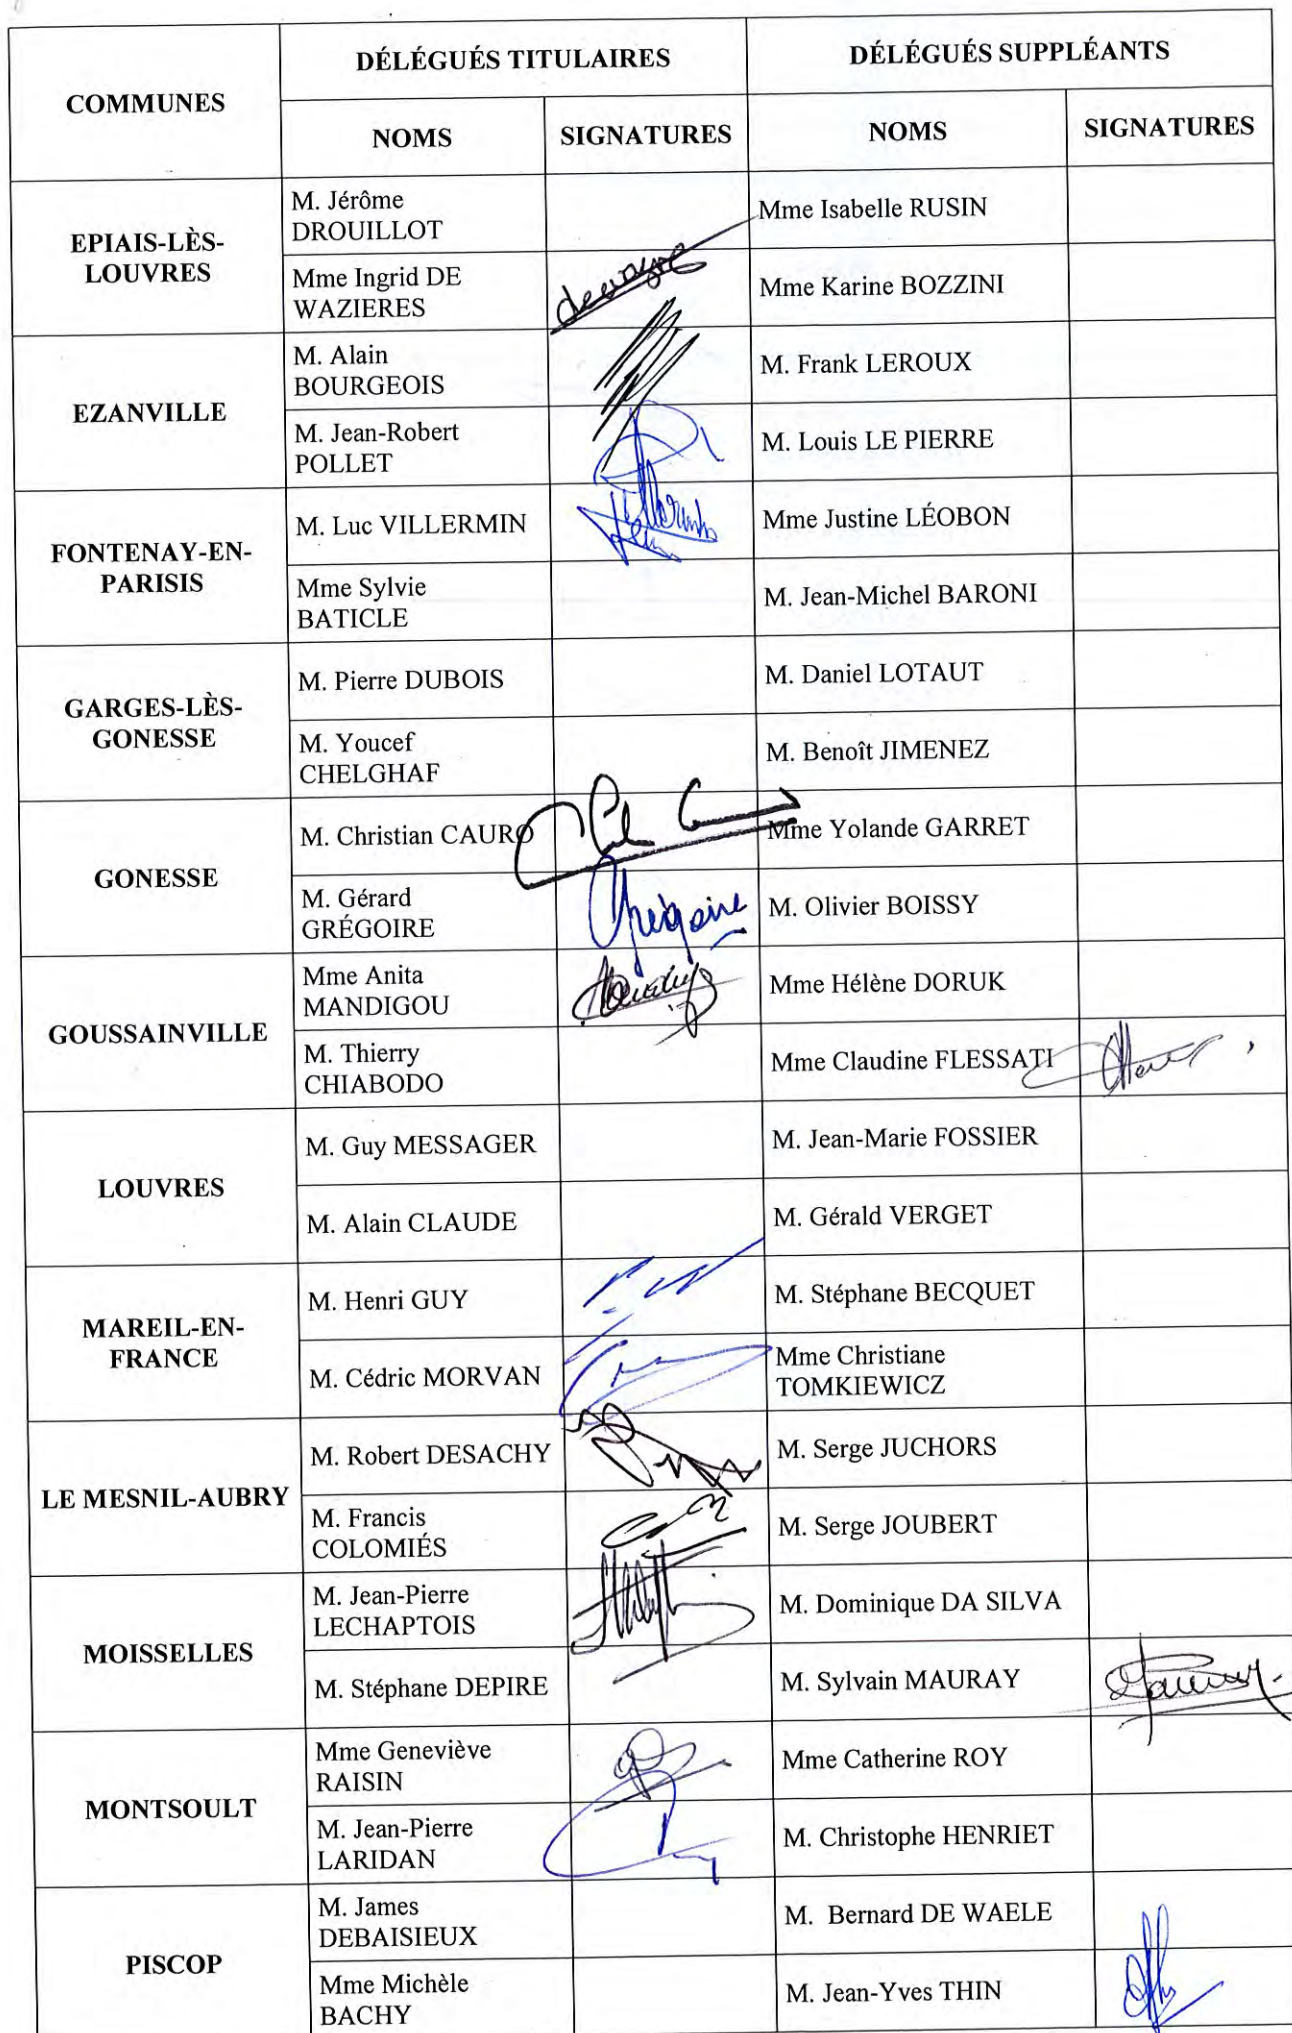 COMMUNES
DÉLÉGUÉS TITULAIRES
DÉLÉGUÉS SUPPLÉANTS
NOMS
SIGNATURES
NOMS
SIGNATURES
EPIAIS-LÈS-
LOUVRES
M. Jérôme
DROUILLOT
Mme Isabelle RUSIN
Mme Ingrid DE
WAZIERES
Mme Karine BOZZINI
EZANVILLE
M. Alain
BOURGEOIS
M. Frank LEROUX
M. Jean-Robert
POLLET
M. Louis LE PIERRE
FONTENAY-EN-
PARISIS
M. Luc VILLERMIN
Mme Justine LÉOBON
Mme Sylvie
BATICLE
M. Jean-Michel BARONI
GARGES-LÈS-
GONESSE
M. Pierre DUBOIS
M. Daniel LOTAUT
M. Youcef
CHELGHAF
M. Benoît JIMENEZ
GONESSE
M. Christian CAURO
Mme Yolande GARRET
M. Gérard
GRÉGOIRE
Grégoire
M. Olivier BOISSY
GOUSSAINVILLE
Mme Anita
MANDIGOU
Mme Hélène DORUK
M. Thierry
CHIABODO
Mme Claudine FLESSATI
LOUVRES
M. Guy MESSAGER
M. Jean-Marie FOSSIER
M. Alain CLAUDE
M. Gérald VERGET
MAREIL-EN-
FRANCE
M. Henri GUY
M. Stéphane BECQUET
M. Cédric MORVAN
Mme Christiane
TOMKIEWICZ
LE MESNIL-AUBRY
M. Robert DESACHY
M. Serge JUCHORS
M. Francis
COLOMIÉS
M. Serge JOUBERT
MOISSELLES
M. Jean-Pierre
LECHAPTOIS
M. Dominique DA SILVA
M. Stéphane DEPIRE
M. Sylvain MAURAY
MONTSOULT
Mme Geneviève
RAISIN
Mme Catherine ROY
M. Jean-Pierre
LARIDAN
M. Christophe HENRIET
PISCOP
M. James
DEBAISIEUX
M. Bernard DE WAELE
Mme Michèle
BACHY
M. Jean-Yves THIN